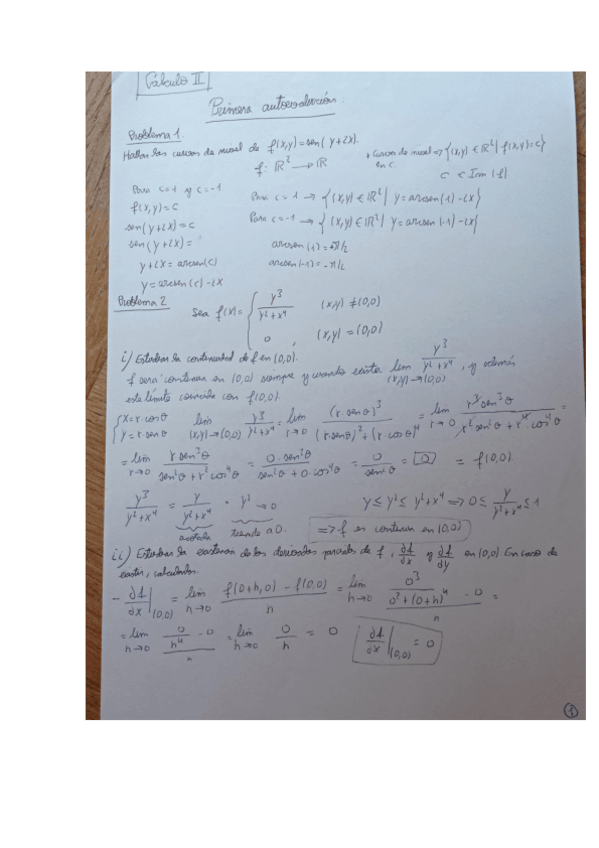 Cálculo II
Primera autoevaluación.
Problema 1.
Hallar las curvas de nivel de f(x,y)=sen(y+2x).
f: ℝ² → ℝ
+ Curvas de nivel ⇒ {(x,y) ∈ ℝ² | f(x,y)=c}
en c. c ∈ Im(f)
Para c=1 y c=-1
f(x,y)=c
sen(y+2x)=c
sen(y+2x)=
y+2x=arcsen(c)
y=arcsen(c)-2x
Para c=1 → {(x,y) ∈ ℝ² | y=arcsen(1)-2x}
Para c=-1 → {(x,y) ∈ ℝ² | y=arcsen(-1)-2x}
arcsen(1)=π/2
arcsen(-1)=-π/2
Problema 2
Sea f(x)= { y³/(y²+x⁴) (x,y)≠(0,0)
0, (x,y)=(0,0)
i) Estudiar la continuidad de f en (0,0).
f será continua en (0,0) siempre y cuando exista lim (x,y)→(0,0) y³/(y²+x⁴), y además
este límite coincida con f(0,0).
{ x=r·cosθ
y=r·senθ
lim (x,y)→(0,0) y³/(y²+x⁴) = lim r→0 (r·senθ)³/((r·senθ)²+(r·cosθ)⁴) = lim r→0 r³sen³θ/(r²sen²θ+r⁴·cos⁴θ) =
= lim r→0 r·sen³θ/(sen²θ+r²cos⁴θ) = 0·sen³θ/(sen²θ+0·cos⁴θ) = 0/sen²θ = 0 = f(0,0)
y³/(y²+x⁴) = y/(y²+x⁴) · y² → 0
acotada tiende a 0.
y ≤ y² ≤ y²+x⁴ ⇒ 0 ≤ y/(y²+x⁴) ≤ 1
⇒ f es continua en (0,0)
ii) Estudiar la existencia de las derivadas parciales de f, ∂f/∂x y ∂f/∂y en (0,0). En caso de
existir, calcularlas.
- ∂f/∂x|(0,0) = lim h→0 (f(0+h,0) - f(0,0))/h = lim h→0 (0³/(0²+(0+h)⁴) - 0)/h =
= lim h→0 (0/h⁴ - 0)/h = lim h→0 0/h = 0 ∂f/∂x|(0,0) = 0
1